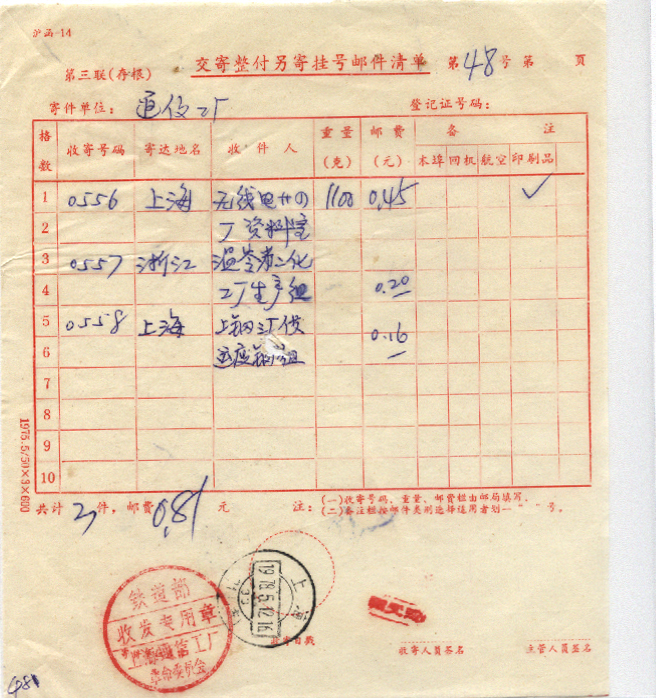 沪函-14
第三联(存根) 交寄整付另寄挂号邮件清单 第48号 第 页
寄件单位: 通信工厂 登记证号码:
格数 收寄号码 寄达地名 收件人 重量(克) 邮费(元) 备注
本埠 回机 航空 印刷品
1 0556 上海 无线电廿四 1100 0.45 ✓
2 厂资料室
3 0557 浙江 温岭 二化
4 工厂生产组 0.20
5 0558 上海 上钢
6 0.16
7
8
9
10
共计 3件, 邮费 0.81 元 注: (一)收寄号码、重量、邮费栏由邮局填写。
(二)备注栏按邮件类别选择适用者划一“ ”号。
1975.5/50×3×600
铁道部
收发专用章
上海通信工厂
革命委员会
上海
1978.5.12.16
收寄日戳 收寄人员签名 主管人员签名